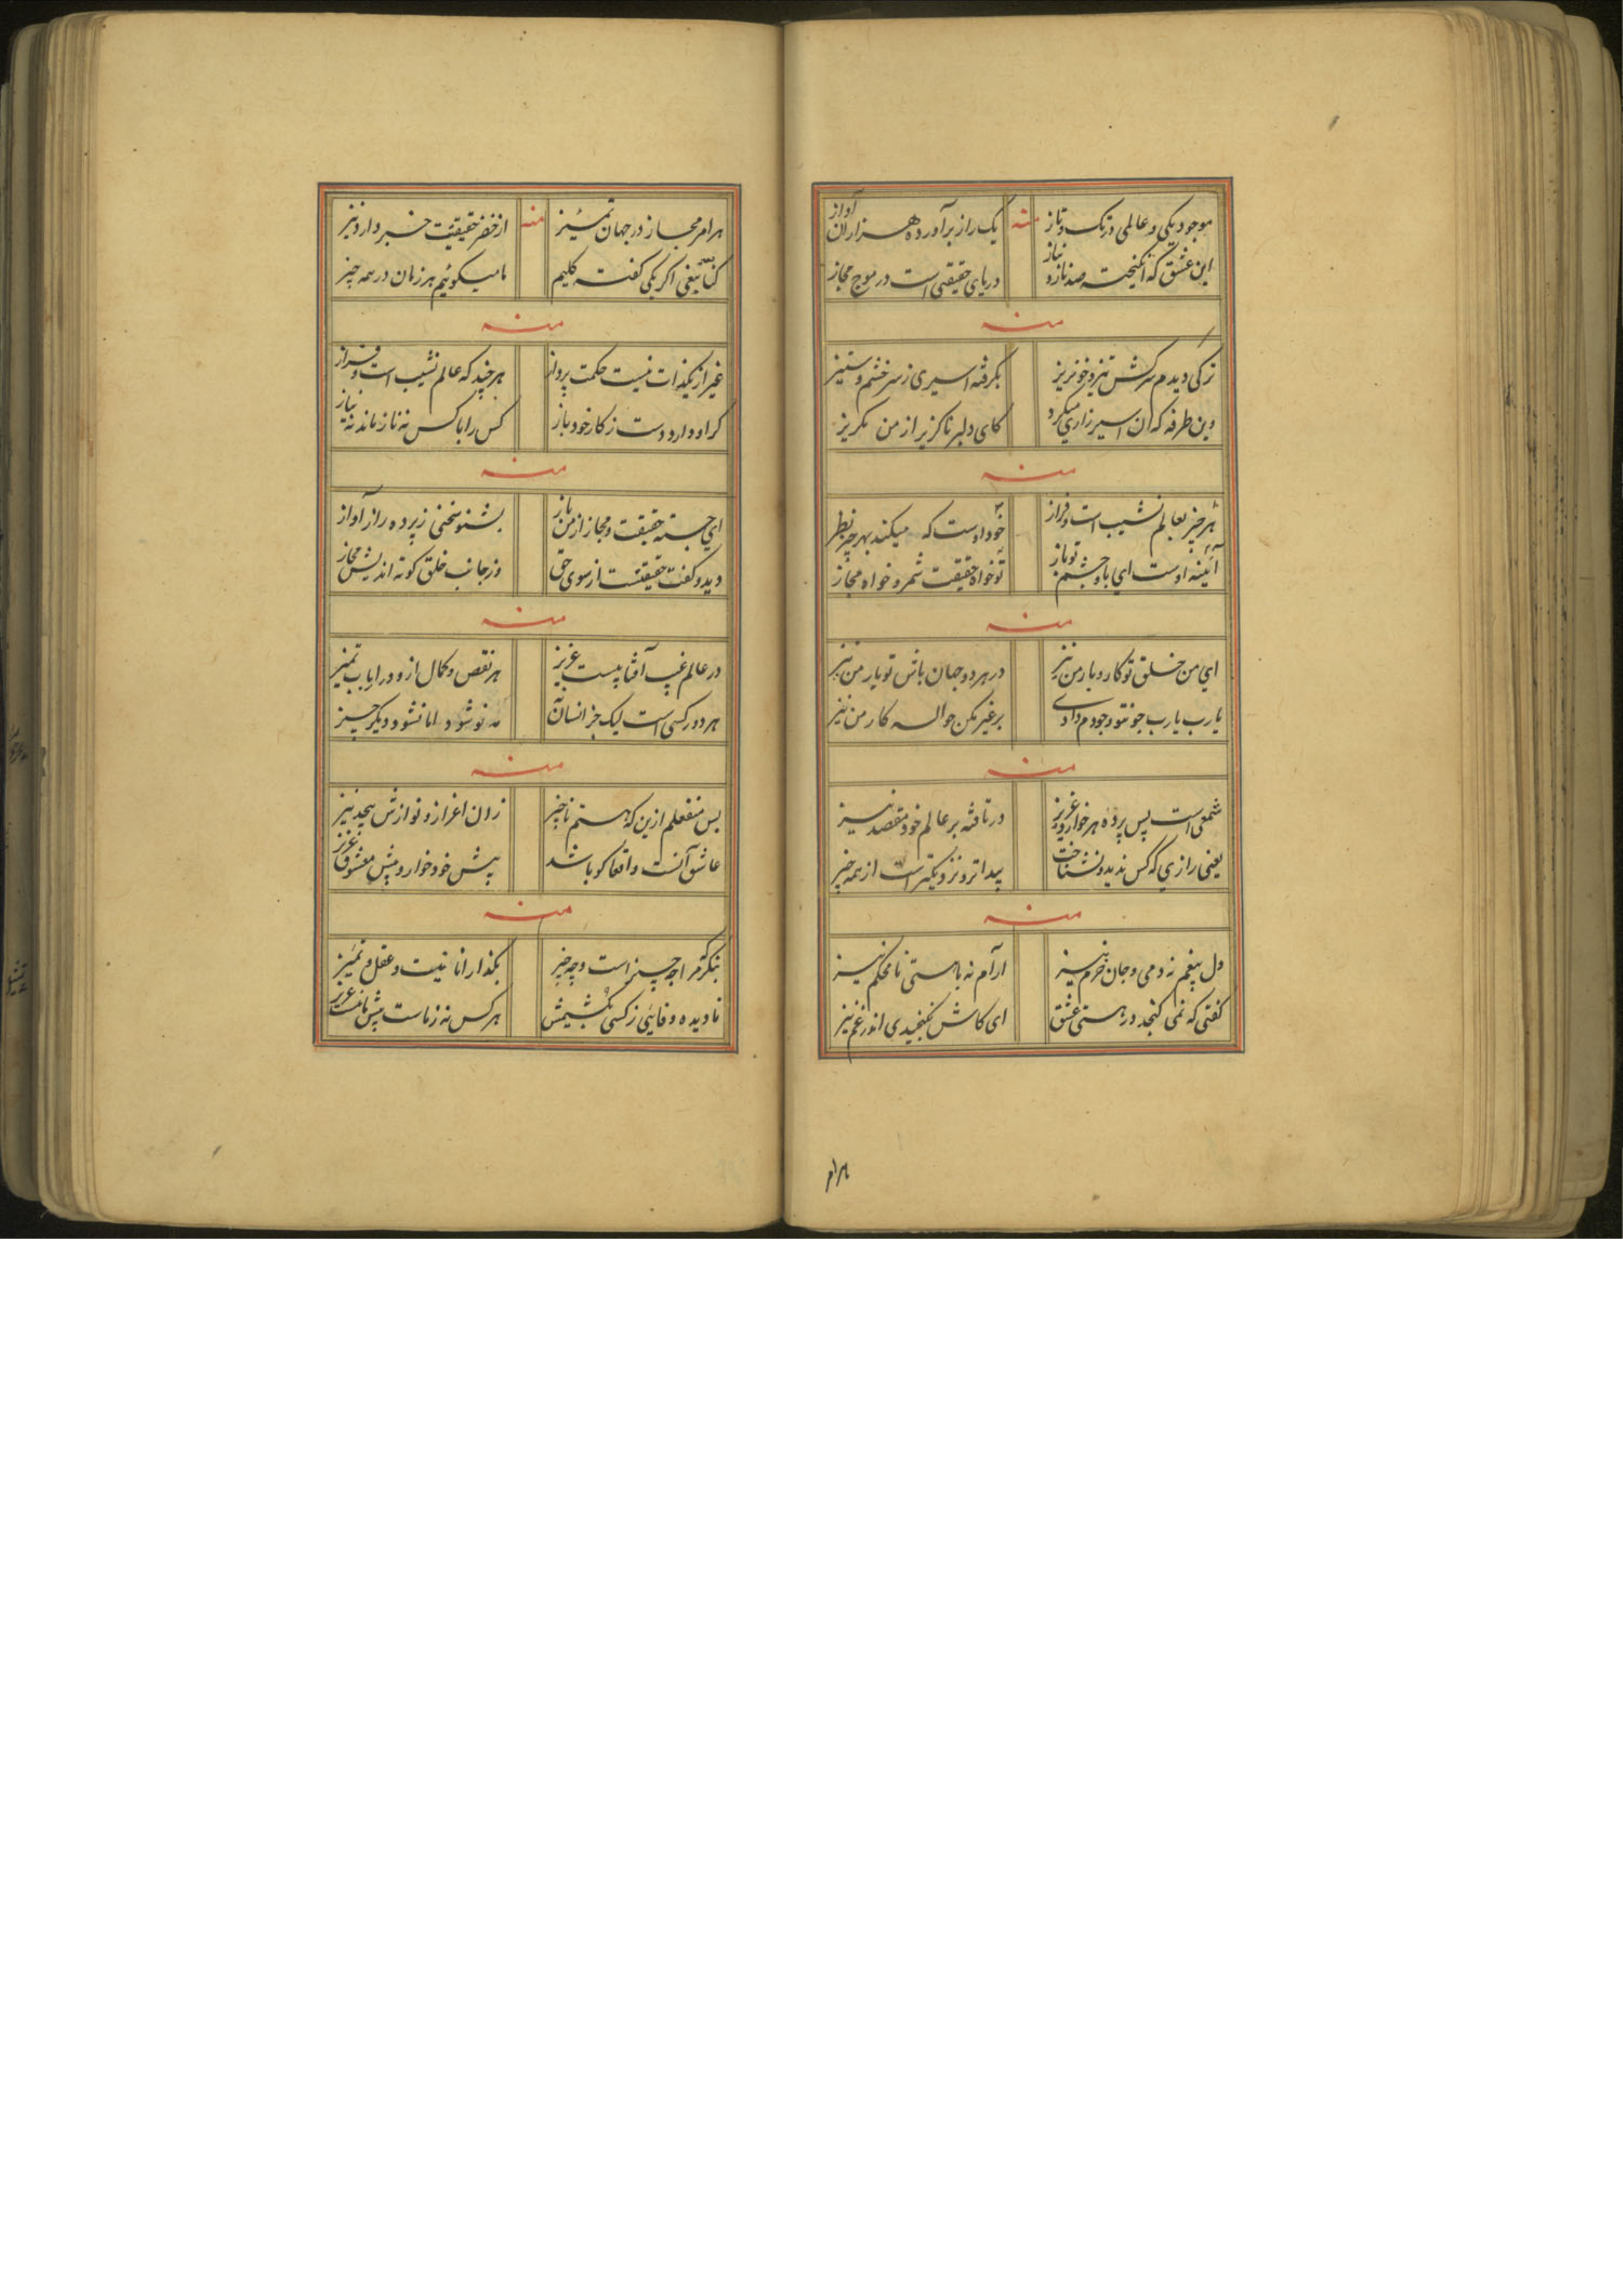 موجود یکی و عالمی در تک و تاز
منه
یک راز برآورده هزاران آواز
این عشق که انگیخت صد ناز و نیاز
دریای حقیقی است در موج مجاز
منه
ترکی دیدم سرکش و تیز و خونریز
بگرفته اسیری ز سر خشم و ستیز
وین طرفه که آن اسیر زاری میکرد
کای دلبر ناگزیر از من مگریز
منه
هر چیز بعالم نشیب است و فراز
خود اوست که میکند بهر چیز نظر
آئینه اوست ای با و چشم تو باز
تو خواه حقیقت شمر و خواه مجاز
منه
ای من خلق تو کار و بار من نیز
در هر دو جهان باش تو یار من نیز
یا رب یا رب چو تو وجودم دادی
بر غیر مکن حواله کار من نیز
منه
شمعی است پس پرده هر خوار و عزیز
در تافته بر عالم خود مقصد نیز
یعنی رازی که کس ندید و نشناخت
پیداتر و نزدیکتر است از همه چیز
منه
دل بیغم نه دمی و جان خرم نیز
آرام نه با هستی نامحکم نیز
گفتی که نمی گنجد در هستی عشق
ای کاش نگنجیدی اندر غم نیز
هر امر
هر امر مجاز در جهان تمییز
منه
از خضر حقیقت خبر دارد نیز
اگر یکی گفت کلیم
ما میگوئیم هر زمان در همه چیز
منه
غیر از یکذات نیست حکمت پرداز
هر چند که عالم نشیب است و فراز
گر او دارد دست ز کار خود باز
کس را با کس نه ناز ماند نه نیاز
منه
ای جسته حقیقت و مجاز از من باز
بشنو سخنی ز پرده راز آواز
دید و گفت حقیقتست از سوی حق
وز جانب خلق کوته اندیش مجاز
منه
در عالم غیب آفتابیست عزیز
هر نقص و کمال ازو دریاب تمییز
هر دور کسی است لیک جز انسان
مه نو شود اما نشود دیگر چیز
منه
بس منفعلم ازین که هستم ناچیز
زان اعزاز و نوازش بیحد نیز
عاشق آنست واقعا کو باشد
پیش خود خوار و پیش معشوق عزیز
منه
بنگر مرا چه چیز است و چه چیز
بگذار انانیت و عقل و تمییز
نادیده وفائی ز کسی
هر کس نه ز ماست پیش ماست عزیز